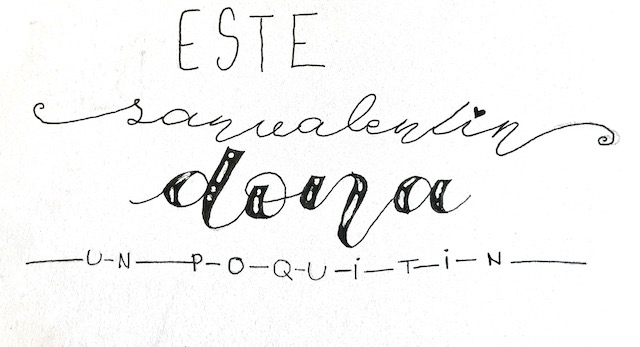 ESTE
sanvalentin
dona
UN POQUITIN